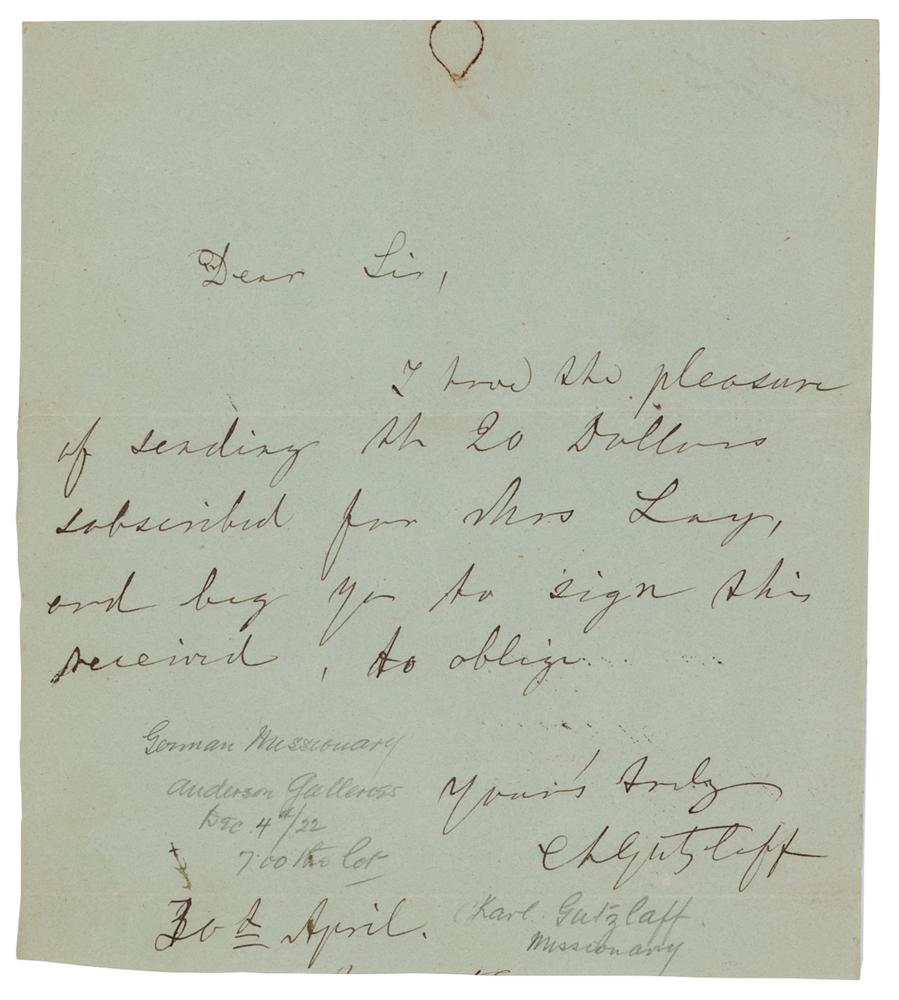 Dear Sir,
I have the pleasure
of sending th 20 Dollars
subscribed for Mrs Lay,
and beg yo to sign this
received, to oblige
German Missionary
Anderson Galleries
Dec. 4th/22
7.00 the lot
Your's truly
ChGutzlaff
30th April.
(Karl Gutzlaff.
Missionary